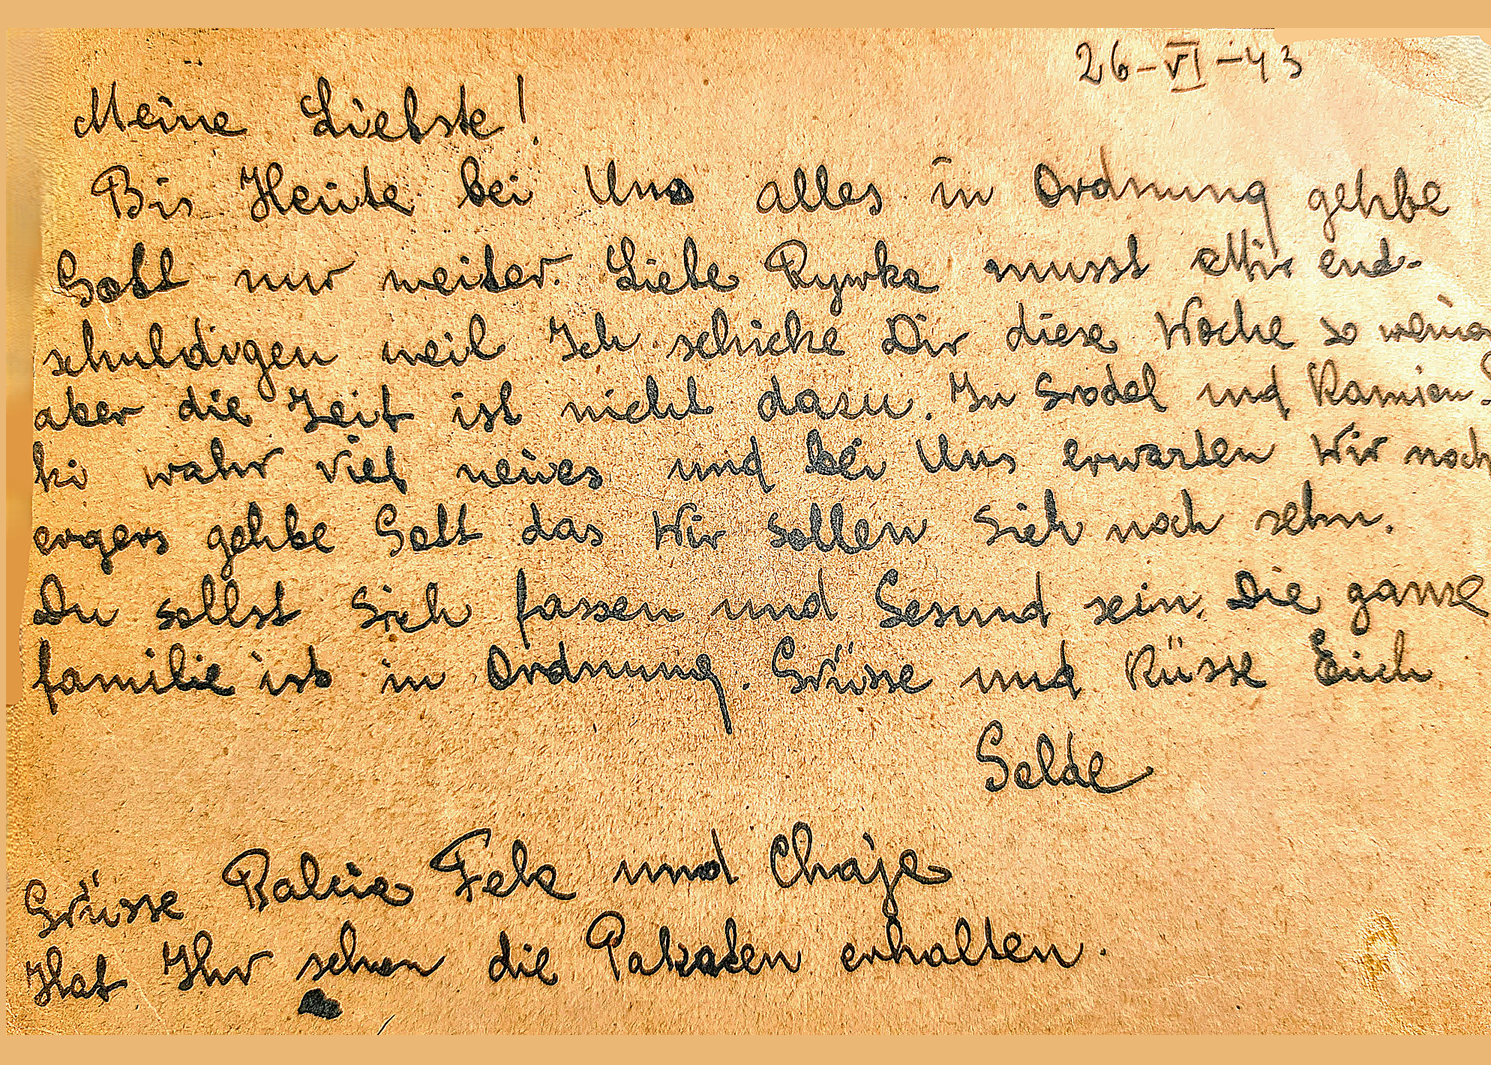 26-VI-43
Meine Liebste!
Bis Heute bei Uns alles in Ordnung gehbe
Gott nur weiter. Liebe Rywka musst Mir end-
schuldigen weil Ich schicke Dir diese Woche so wenig
aber die Zeit ist nicht dazu. In Srodel und Kamien
ki wahr viel neues und bei Uns erwarten Wir noch
ergers gehbe Gott das Wir sollen Sich noch sehn.
Du sollst Sich fassen und Gesund sein. Die ganze
familie ist in Ordnung. Grüsse und Küsse Euch
Grüsse Balcie Fele und Chaje
Hat Ihr schon die Pakaten erhalten.